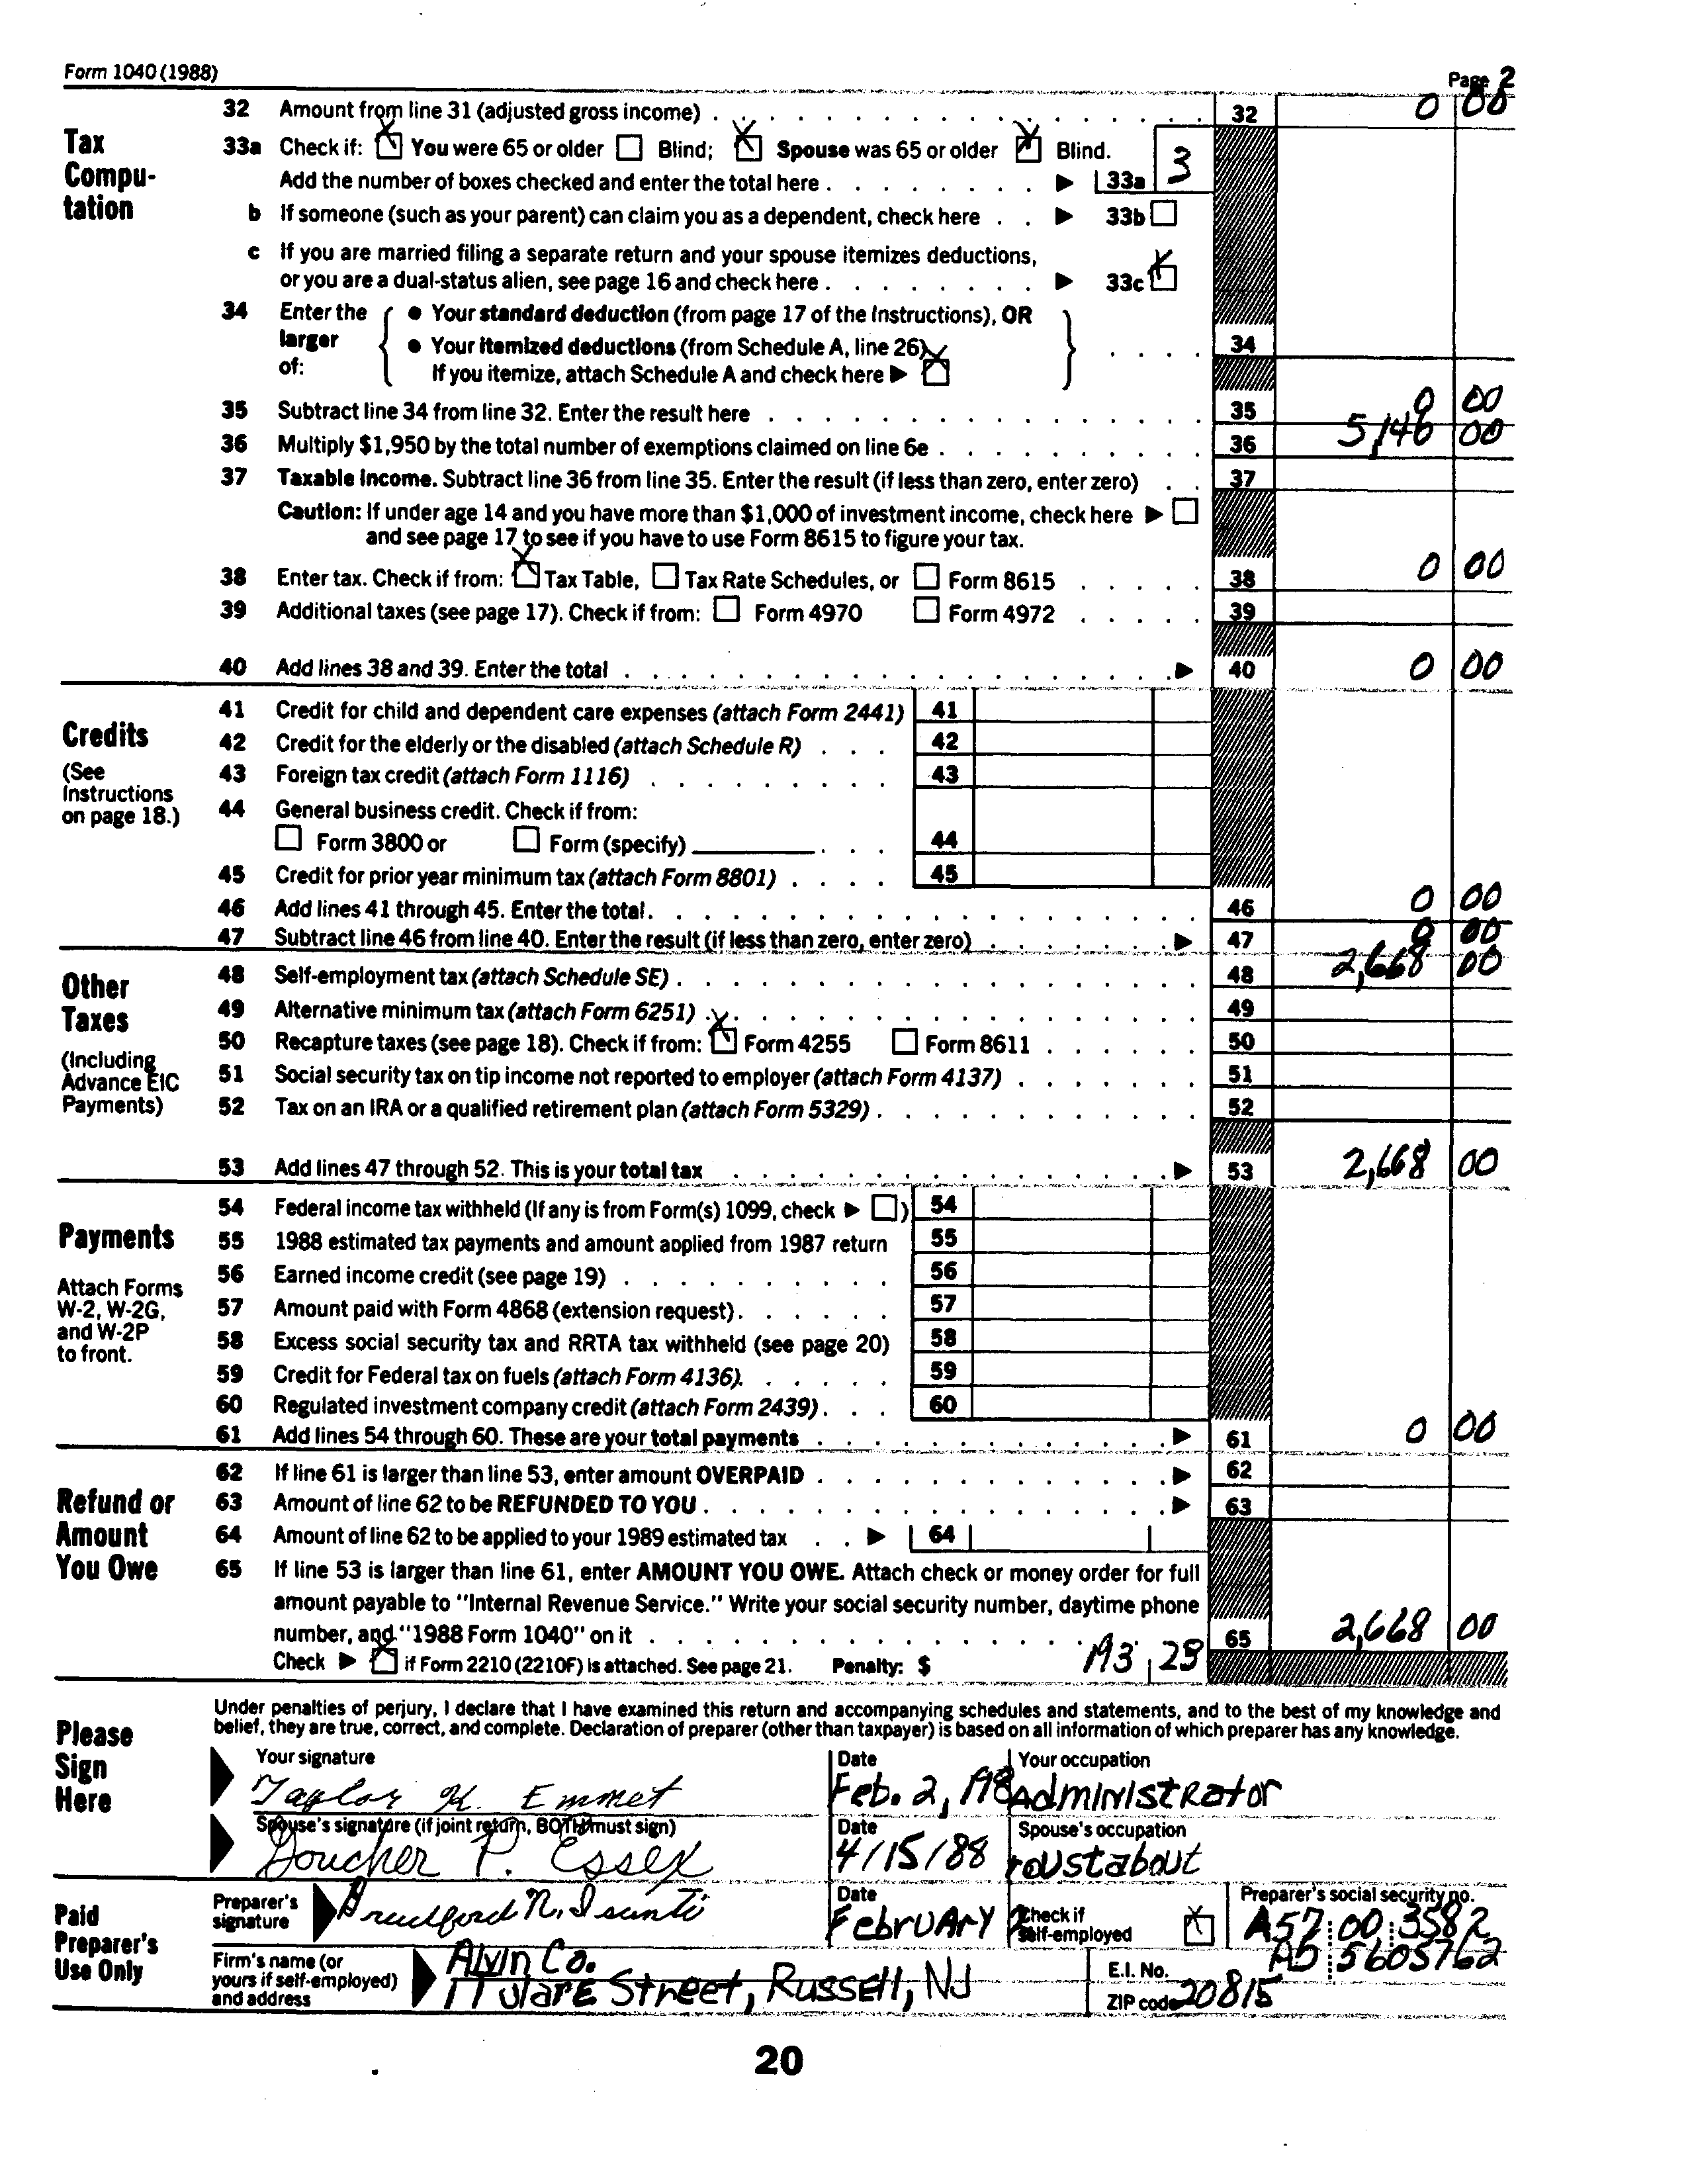 Form 1040 (1988) Page 2
32 Amount from line 31 (adjusted gross income) 32 0 00
Tax Compu-tation
33a Check if: You were 65 or older Blind; Spouse was 65 or older Blind.
Add the number of boxes checked and enter the total here 33a 3
b If someone (such as your parent) can claim you as a dependent, check here 33b
c If you are married filing a separate return and your spouse itemizes deductions,
or you are a dual-status alien, see page 16 and check here 33c
34 Enter the larger of: { • Your standard deduction (from page 17 of the Instructions), OR
• Your itemized deductions (from Schedule A, line 26) } 34
If you itemize, attach Schedule A and check here
35 Subtract line 34 from line 32. Enter the result here 35 0 00
36 Multiply $1,950 by the total number of exemptions claimed on line 6e 36 5,146 00
37 Taxable income. Subtract line 36 from line 35. Enter the result (if less than zero, enter zero) 37
Caution: If under age 14 and you have more than $1,000 of investment income, check here
and see page 17 to see if you have to use Form 8615 to figure your tax.
38 Enter tax. Check if from: Tax Table, Tax Rate Schedules, or Form 8615 38 0 00
39 Additional taxes (see page 17). Check if from: Form 4970 Form 4972 39
40 Add lines 38 and 39. Enter the total 40 0 00
Credits
(See Instructions on page 18.)
41 Credit for child and dependent care expenses (attach Form 2441) 41
42 Credit for the elderly or the disabled (attach Schedule R) 42
43 Foreign tax credit (attach Form 1116) 43
44 General business credit. Check if from:
Form 3800 or Form (specify) 44
45 Credit for prior year minimum tax (attach Form 8801) 45
46 Add lines 41 through 45. Enter the total 46 0 00
47 Subtract line 46 from line 40. Enter the result (if less than zero, enter zero) 47 0 00
Other Taxes
(Including Advance EIC Payments)
48 Self-employment tax (attach Schedule SE) 48 2,668 00
49 Alternative minimum tax (attach Form 6251) 49
50 Recapture taxes (see page 18). Check if from: Form 4255 Form 8611 50
51 Social security tax on tip income not reported to employer (attach Form 4137) 51
52 Tax on an IRA or a qualified retirement plan (attach Form 5329) 52
53 Add lines 47 through 52. This is your total tax 53 2,668 00
Payments
Attach Forms W-2, W-2G, and W-2P to front.
54 Federal income tax withheld (If any is from Form(s) 1099, check ) 54
55 1988 estimated tax payments and amount applied from 1987 return 55
56 Earned income credit (see page 19) 56
57 Amount paid with Form 4868 (extension request) 57
58 Excess social security tax and RRTA tax withheld (see page 20) 58
59 Credit for Federal tax on fuels (attach Form 4136) 59
60 Regulated investment company credit (attach Form 2439) 60
61 Add lines 54 through 60. These are your total payments 61 0 00
Refund or Amount You Owe
62 If line 61 is larger than line 53, enter amount OVERPAID 62
63 Amount of line 62 to be REFUNDED TO YOU 63
64 Amount of line 62 to be applied to your 1989 estimated tax 64
65 If line 53 is larger than line 61, enter AMOUNT YOU OWE. Attach check or money order for full
amount payable to "Internal Revenue Service." Write your social security number, daytime phone
number, and "1988 Form 1040" on it 65 2,668 00
Check if Form 2210 (2210F) is attached. See page 21. Penalty: $
Please Sign Here
Under penalties of perjury, I declare that I have examined this return and accompanying schedules and statements, and to the best of my knowledge and
belief, they are true, correct, and complete. Declaration of preparer (other than taxpayer) is based on all information of which preparer has any knowledge.
Your signature Date Your occupation
Taylor K. Emmet Feb. 2, 198 Administrator
Spouse's signature (if joint return, BOTH must sign) Date Spouse's occupation
P. Essex 4/15/88 roustabout
Paid Preparer's Use Only
Preparer's signature Date Check if self-employed Preparer's social security no.
N. February A57 00 3582
Firm's name (or yours if self-employed) and address
Alvin Co. E.I. No. A5 5605762
Street, Russell, NJ ZIP code 20815
20